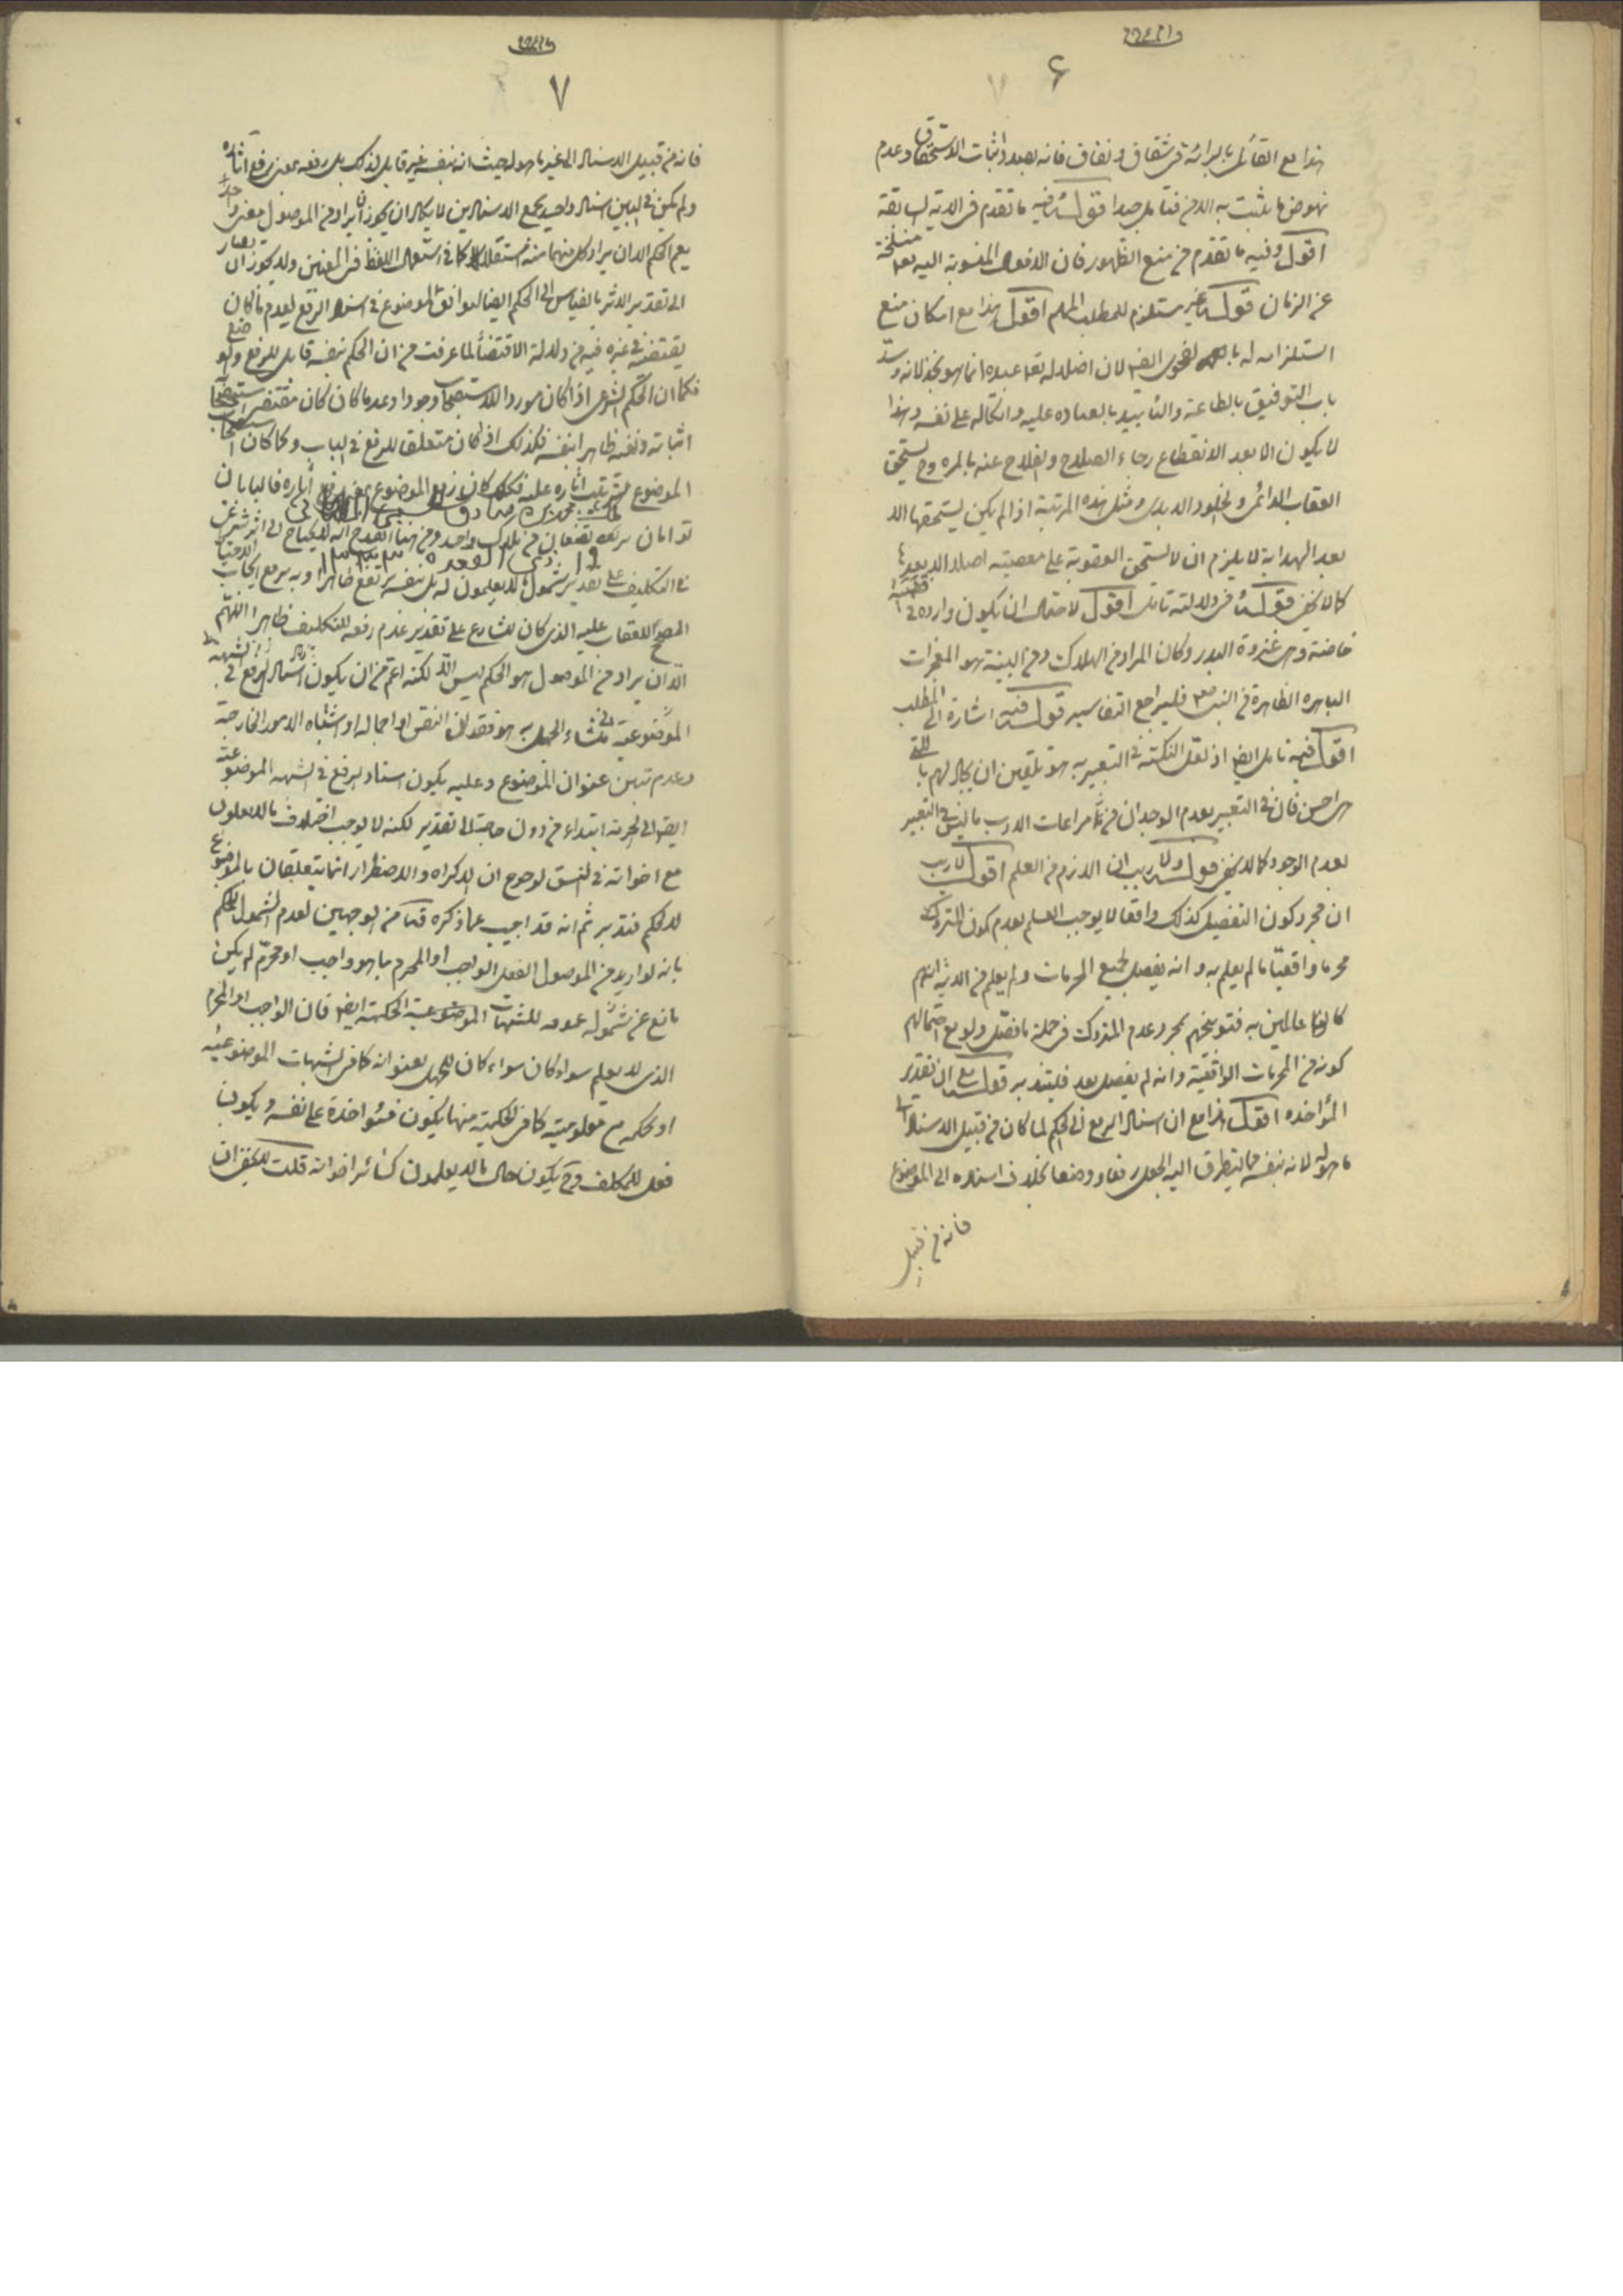 ۶
هذا مع القائل بالبرائة فى شقاق و نفاق فانه بصدد اثبات الاستحقاق و عدم
نهوض ما يثبت به الامن فتامل جيدا قوله وفيه ما تقدم فى الاية السابقة
اقول وفيه ما تقدم من منع الظهور فان الافعال المنسوبة اليه تعالى منسلخة
عن الزمان قوله غير مستلزم للمطلب المهم اقول هذا مع امكان منع
استلزامه له بالفحوى ايضا لان اضلاله تعالى عبده انما هو بخذلانه و سد
باب التوفيق بالطاعة والتأييد بالعبادة عليه و اتكاله على نفسه و هذا
لا يكون الا بعد الانقطاع رجاء الصلاح و الفلاح عنه بالمره و ح يستحق
العقاب الدائمى و الخلود الابدى و مثل هذه المرتبة اذا لم يكن يستحقها الا
بعد الهداية لا يلزم ان لا يستحق العقوبة على معصيته اصلا الا بعدها
كما لا يخفى قوله فى دلالته تامل اقول لاحتمال ان يكون وارده فى قضية
خاصة وهى غزوة البدر و كان المراد من الهلاك و من البينة هو المعجزات
الباهره الظاهرة من النبى فليراجع التفاسير قوله فيه اشارة الى المطلب
اقول فيه تامل ايضا اذ لعل النكتة فى التعبير به هو تلقين ان يجادلهم بالتى
هى احسن فان فى التعبير بعدم الوجدان من مراعات الادب ما ليس فى التعبير
بعدم الوجود كما لا يخفى قوله ولا ريب ان اللازم من العلم اقول لا ريب
ان مجرد كون التفصيل كذلك واقعا لا يوجب العلم بعدم كون المتروك
محرما واقعيا ما لم يعلم به و انه يفصل جميع المحرمات و لم يعلم من الاية انهم
كانوا عالمين به فتوبيخهم بمجرد عدم المتروك فى جملة ما فصل ولو مع احتمالهم
كونه من المحرمات الواقعية و انه لم يفصل بعد فليتدبر قوله مع ان تقدير
المؤاخذه اقول هذا مع ان اسناد الرفع الى الحكم لما كان من قبيل الاسناد الى
ما هو له لانه بنفسه مما يتطرق اليه الجعل رفعا و وضعا بخلاف اسناده الى الموضوع
فانه من قبيل
۷
فانه من قبيل الاسناد الى غير ما هو له حيث انه بنفسه غير قابل لذلك بل رفعه بمعنى رفع آثاره
و لم يكن فى البين اسناد واحد يجمع الاسنادين لا يكاد ان يجوز ان يراد من الموصول معنى واحد
يعم الحكم الا ان يراد كل منهما منه مستقلا كما فى استعمال اللفظ فى المعنيين ولا يجوز ان يصار
الى تقدير الاثر بالقياس الى الحكم ايضا ليوافق الموضوع فى اسناد الرفع لعدم ما كان
يقتضيه فى غيره فيه من دلالة الاقتضاء لما عرفت من ان الحكم بنفسه قابل للرفع و الوضع
فكما ان الحكم الشرعى اذا كان موردا للاستصحاب وجودا و عدما كان كان مقتضى استصحابه
اثباته و نفيه ظاهرا بنفسه فكذلك اذا كان متعلقا للرفع فى الباب و كما كان استصحاب
الموضوع بترتيب آثاره عليه فكذلك كان رفع الموضوع بمعنى رفع آثاره فالبابان
توامان يرتضعان من ثدى واحد و من هنا انقدح انه لا يحتاج الى اثر شرعى غير
فى التكليف على تقدير شموله ما لا يعلمون له بل بنفسه يرتفع ظاهرا و به يرفع ايجاب الاحتياط
المصحح للعقاب عليه الذى كان للشارع على تقدير عدم رفعه للتكليف ظاهرا اللهم
الا ان يراد من الموصول هو الحكم ليس الا لكنه اعم من ان يكون اسناد الرفع فى الشبهة
الموضوعية منشاء الجهل به هو فقدان النص او اجماله او اشتباه الامور الخارجة
و عدم تبين عنوان الموضوع و عليه يكون اسناد الرفع فى الشبهة الموضوعية
ايضا الى الحرمة ابتداء من دون حاجة الى تقدير لكنه لا يوجب اختلاف ما لا يعلمون
مع اخواته فى النسق لوضوح ان الاكراه و الاضطرار انما يتعلقان بالموضوع
لا الحكم فتدبر ثم انه قد اجيب عما ذكره من الوجهين لعدم الشمول للحكم
بانه لو اريد من الموصول الفعل الواجب او المحرم بما هو واجب او محرم لم يكن
مانع عن شموله عمومه للشبهات الموضوعية الحكمية ايضا فان الواجب او المحرم
الذى لا يعلم سواء كان سواء كان للجهل بعنوانه كما فى الشبهات الموضوعية
او بحكمه مع معلوميته كما فى الحكمية منها يكون المؤاخذة على نفسه و يكون
فعل للمكلف و ح يكون حال ما لا يعلمون كسائر اخواته قلت لا يخفى ان